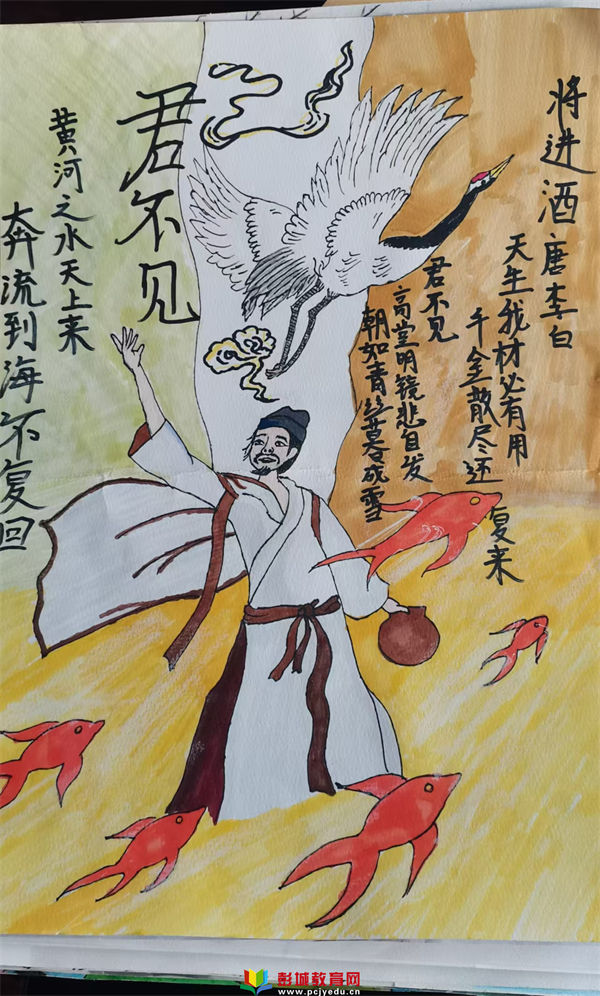 将进酒
唐李白
天生我材必有用
千金散尽还
复来
君不见
高堂明镜悲自发
朝如青丝暮成雪
君不见
黄河之水天上来
奔流到海不复回
彭城教育网
www.pcjyedu.cn